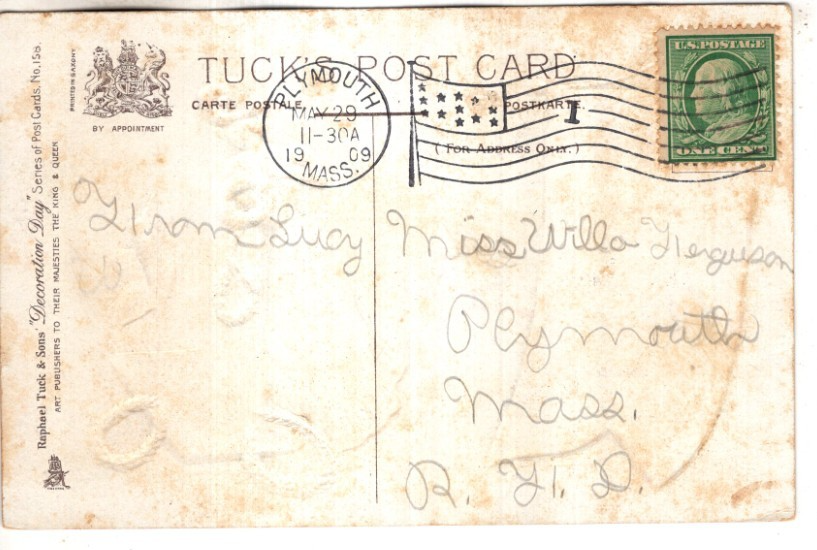 TUCK'S POST CARD
CARTE POSTALE
POSTKARTE.
(FOR ADDRESS ONLY.)
BY APPOINTMENT
PRINTED IN SAXONY
Raphael Tuck & Sons' "Decoration Day" Series of Post Cards. No. 158.
ART PUBLISHERS TO THEIR MAJESTIES THE KING & QUEEN
PLYMOUTH
MAY 29
11-30A
1909
MASS.
1
U.S. POSTAGE
ONE CENT
From Lucy
Miss Willa Ferguson
Plymouth
Mass.
R. F. D.